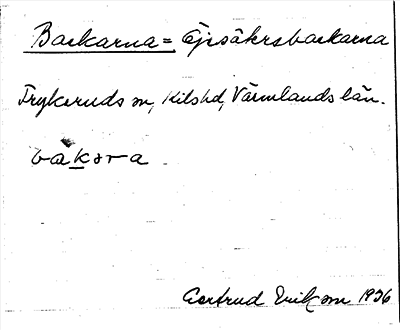 Backarna = Öjesåkrsbackarna
Frykeruds sn, Kils hd, Värmlands län.
bakara
Gertrud Erikson 1936